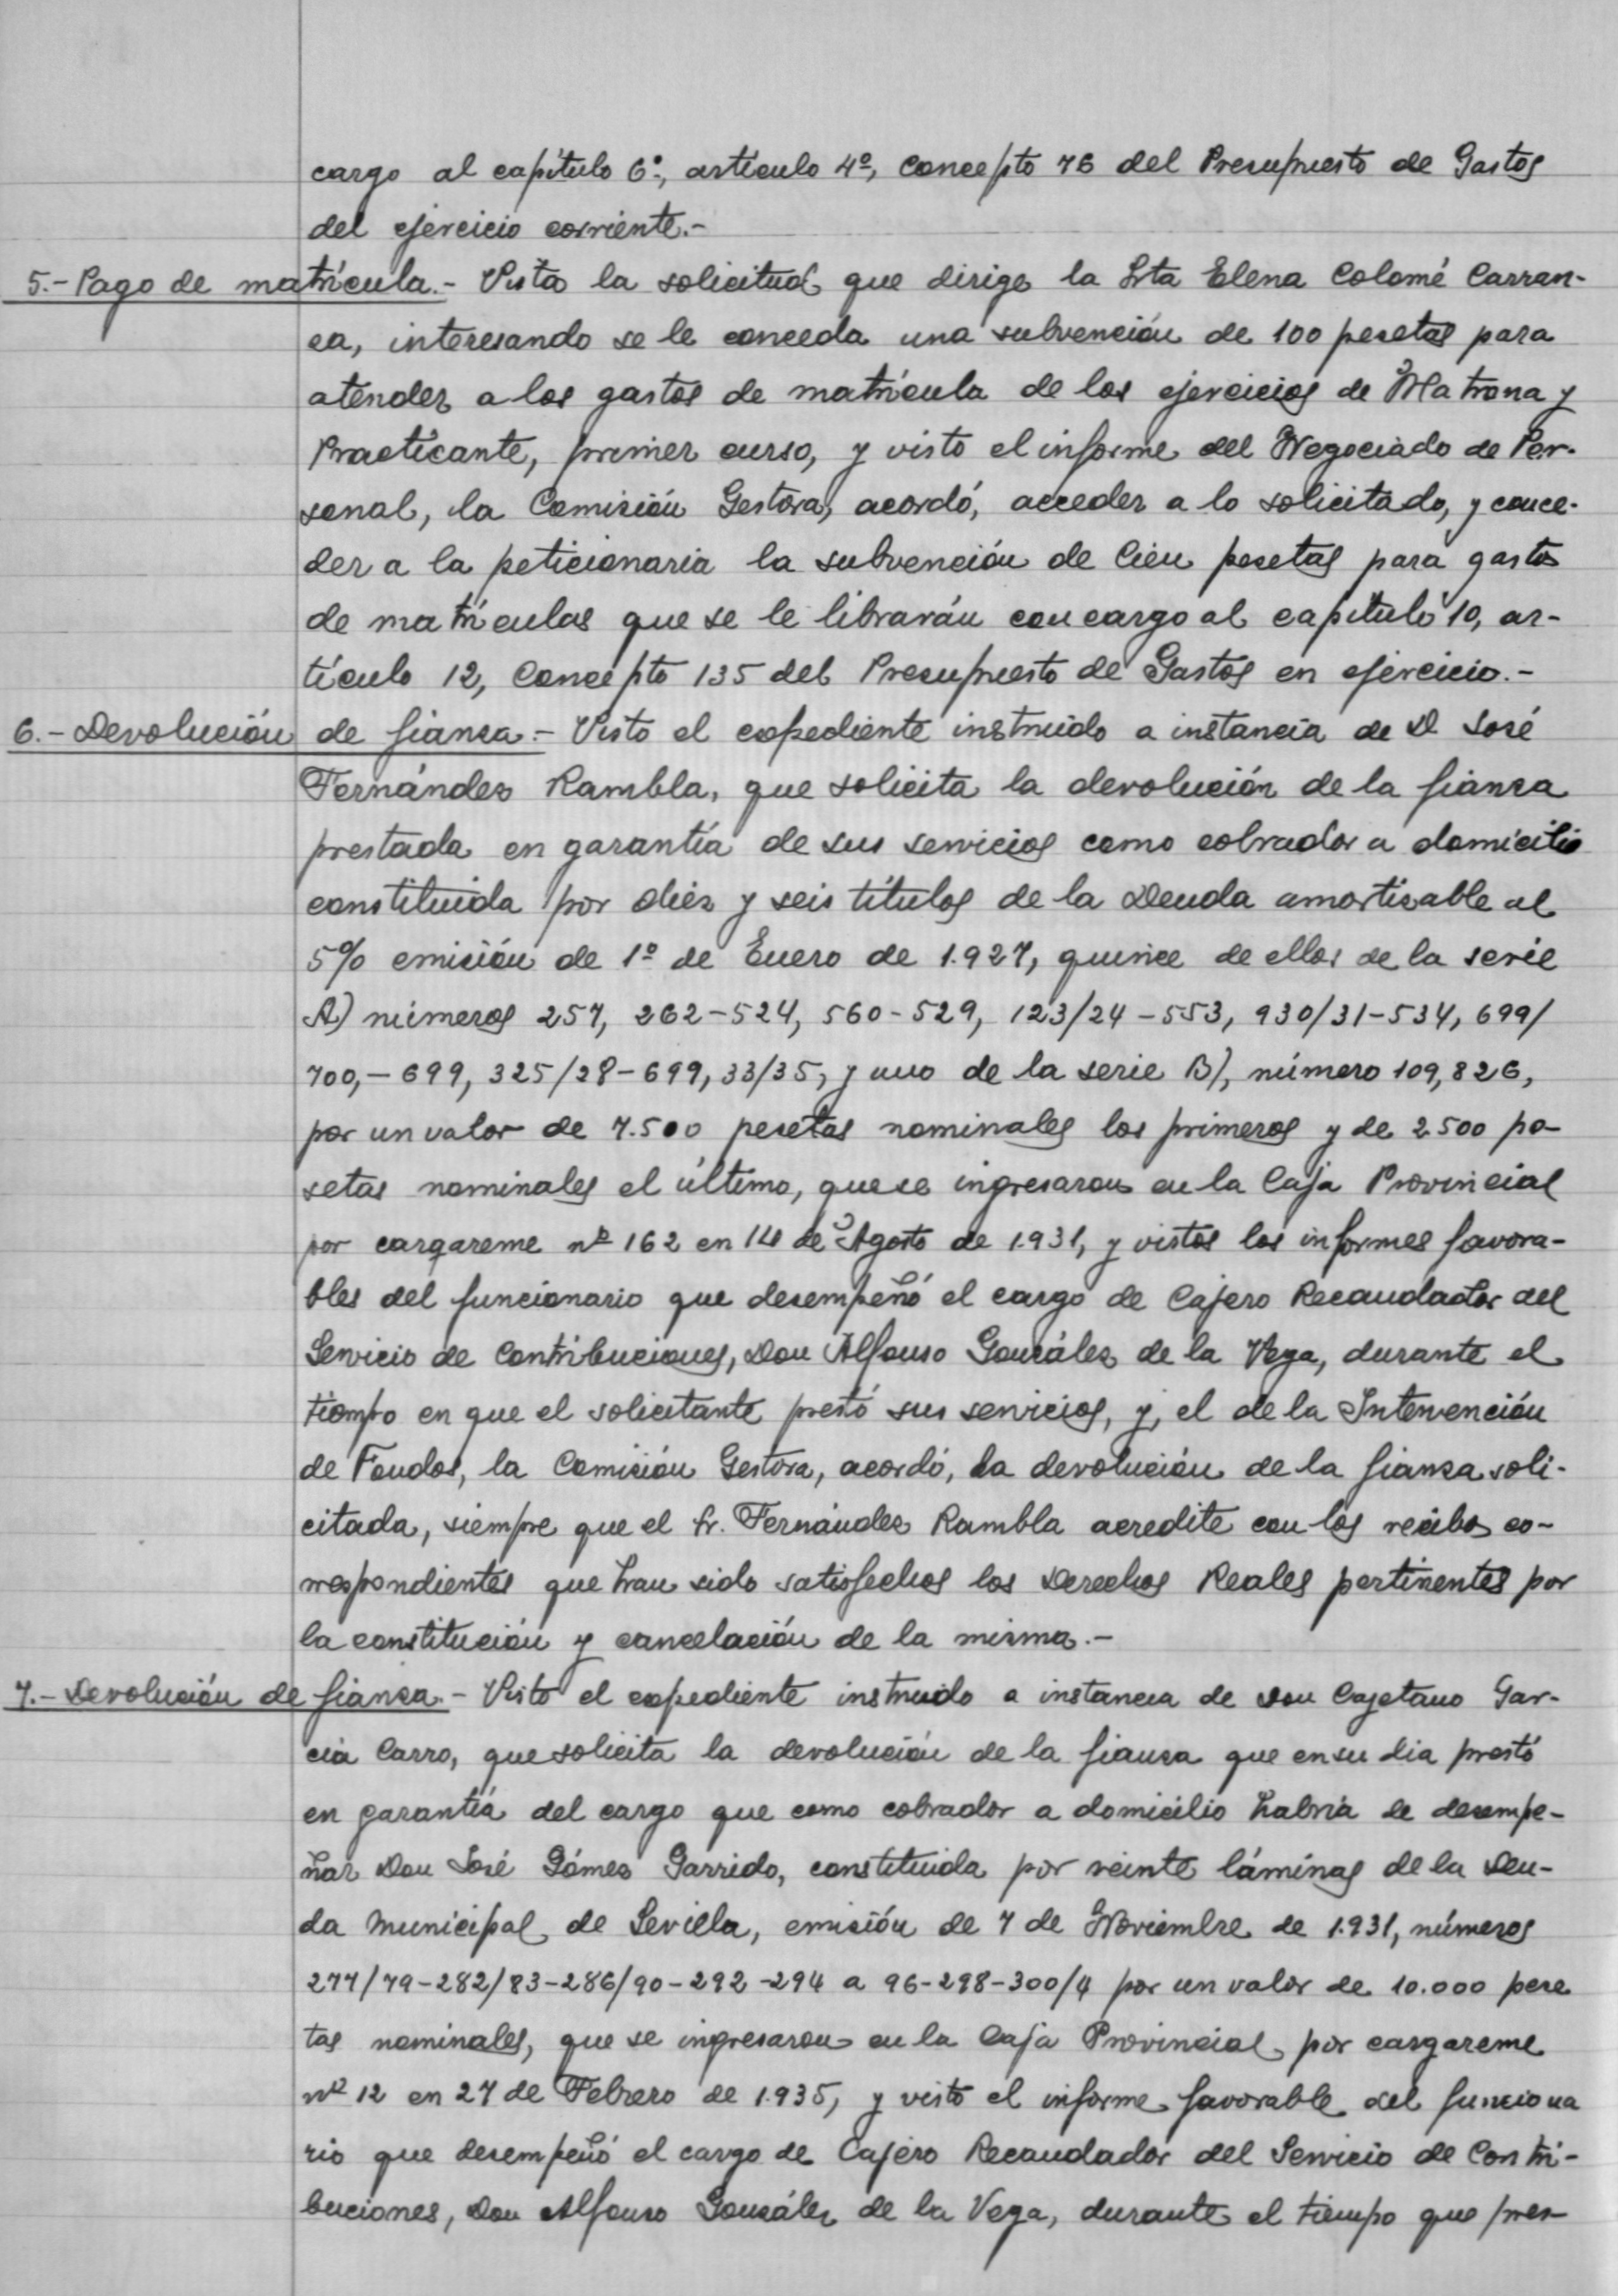 cargo al capítulo 6º, artículo 4º, concepto 76 del Presupuesto de Gastos
del ejercicio corriente.-
5.- Pago de matrícula.- Vista la solicitud que dirige la Srta Elena Colomé Carran-
ca, interesando se le conceda una subvención de 100 pesetas para
atender a los gastos de matrícula de los ejercicios de Matrona y
Practicante, primer curso, y visto el informe del Negociado de Per-
sonal, la Comisión Gestora, acordó, acceder a lo solicitado, y conce-
der a la peticionaria la subvención de Cien pesetas para gastos
de matrículas que se le librarán con cargo al capítulo 10, ar-
tículo 12, Concepto 135 del Presupuesto de Gastos en ejercicio.-
6.- Devolución de fianza.- Visto el expediente instruido a instancia de D José
Fernández Rambla, que solicita la devolución de la fianza
prestada en garantía de sus servicios como cobrador a domicilio
constituida por diez y seis títulos de la Deuda amortizable al
5% emisión de 1º de Enero de 1.927, quince de ellos de la serie
A) números 257, 262-524, 560-529, 123/24-553, 930/31-534, 699/
700,- 699, 325/28-699, 33/35, y uno de la serie B), número 109,826,
por un valor de 7.500 pesetas nominales los primeros y de 2.500 pe-
setas nominales el último, que se ingresaron en la Caja Provincial
por cargareme nº 162 en 14 de Agosto de 1.931, y vistos los informes favora-
bles del funcionario que desempeñó el cargo de Cajero Recaudador del
Servicio de Contribuciones, Don Alfonso González de la Vega, durante el
tiempo en que el solicitante prestó sus servicios, y, el de la Intervención
de Fondos, la Comisión Gestora, acordó, la devolución de la fianza soli-
citada, siempre que el Sr. Fernández Rambla acredite con los recibos co-
rrespondientes que han sido satisfechos los Derechos Reales pertinentes por
la constitución y cancelación de la misma.-
7.- Devolución de fianza.- Visto el expediente instruido a instancia de Don Cayetano Gar-
cia Carro, que solicita la devolución de la fianza que en su dia prestó
en garantía del cargo que como cobrador a domicilio habría de desempe-
ñar Don José Gómez Garrido, constituida por veinte láminas de la Deu-
da Municipal de Sevilla, emisión de 7 de Noviembre de 1.931, números
277/79-282/83-286/90-292-294 a 96-298-300/4 por un valor de 10.000 pese
tas nominales, que se ingresaron en la Caja Provincial por cargareme
nº 12 en 27 de Febrero de 1.935, y visto el informe favorable del funciona
rio que desempeñó el cargo de Cajero Recaudador del Servicio de Contri-
buciones, Don Alfonso González de la Vega, durante el tiempo que pres-